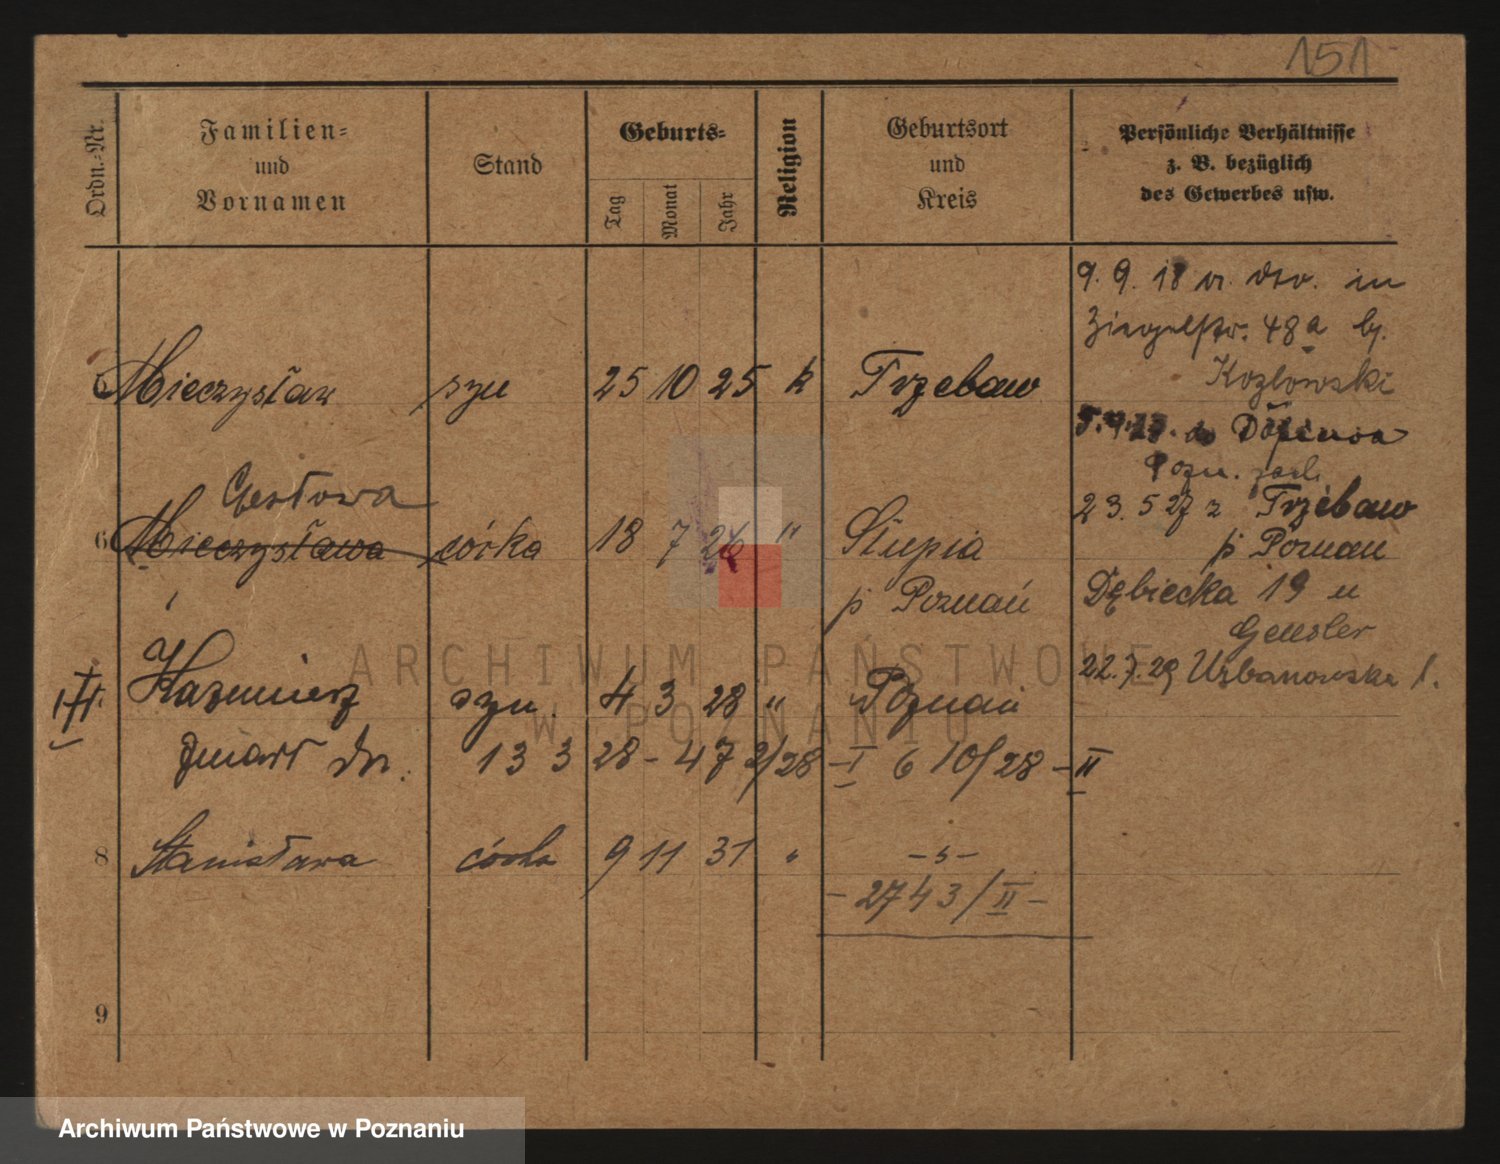 151
Ordn.-Nr.
Familien-
und
Vornamen
Stand
Geburts-
Tag
Monat
Jahr
Religion
Geburtsort
und
Kreis
Persönliche Verhältnisse
z. B. bezüglich
des Gewerbes usw.
9. 9. 18 in
Ziegelstr. 48a b.
Kozlowski
Mieczysław syn 25 10 25 k Trzebaw
Pozn.
23. 5 27 z Trzebaw
p Poznań
6 Mieczysława córka 18 7 26 " Słupia
p Poznań
Dębiecka 19 u
Gensler
22.7.29 Urbanowska 1.
Kazimierz syn 4 3 28 " Poznań
zmarł dn. 13 3 28 - 47 2/28 - I 6 10/28 - II
8 Stanisława córka 9 11 31 " -s-
- 2743/II -
9
ARCHIWUM PAŃSTWOWE
W POZNANIU
Archiwum Państwowe w Poznaniu